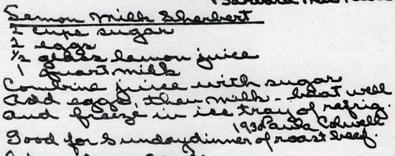 Lemon Milk Sherbert
2 cups sugar
2 eggs
1/2 glass lemon juice
1 quart milk
Combine juice with sugar
Add eggs, then milk -- beat well
and freeze in ice tray of refrig.
1930 Paula Colwell
Good for Sunday dinner of roast beef.